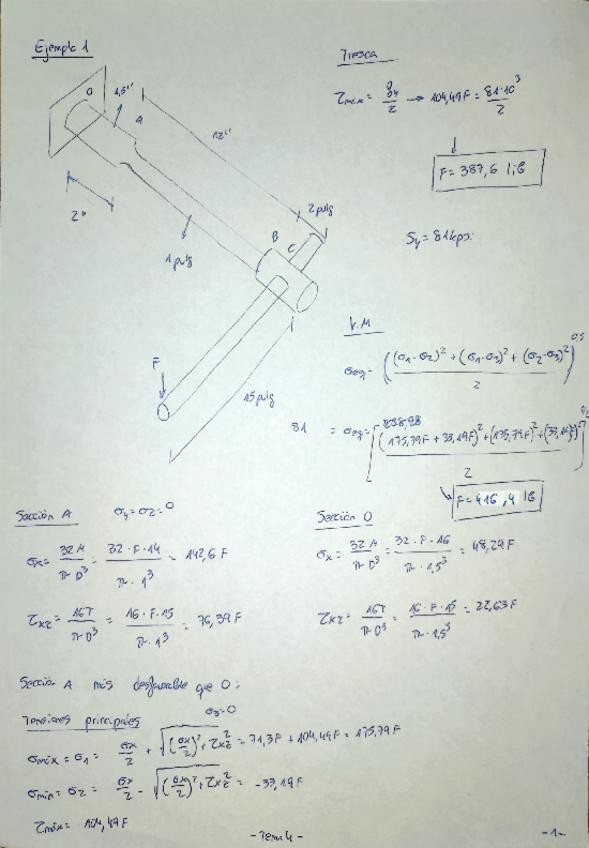 Ejemplo 1
O
1,5"
A
12"
2 pulg
B
C
2"
1 pulg
F
15 pulg
Tresca
τmáx = σy/2 → 104,49F = 81·10³/2
F = 387,6 lib
Sy = 81 kpsi
V.M
σeq = (((σ1-σ2)² + (σ1-σ3)² + (σ2-σ3)²)/2)^0,5
81 = σeq =
F = 416,4 lb
Sección A
σy = σz = 0
σx = 32M/πD³ = 32·F·14/π·1³ = 142,6 F
τxz = 16T/πD³ = 16·F·15/π·1³ = 76,39 F
Sección O
σx = 32M/πD³ = 32·F·16/π·1,5³ = 48,29 F
τxz = 16T/πD³ = 16·F·15/π·1,5³ = 22,63 F
Sección A más desfavorable que O:
Tensiones principales
σ3 = 0
σmáx = σ1 = σx/2 + √((σx/2)² + τxz²) = 71,3F + 104,49F = 175,79F
σmin = σ2 = σx/2 - √((σx/2)² + τxz²) = -33,19F
τmáx = 104,49 F
- Tema 4 -
-1-